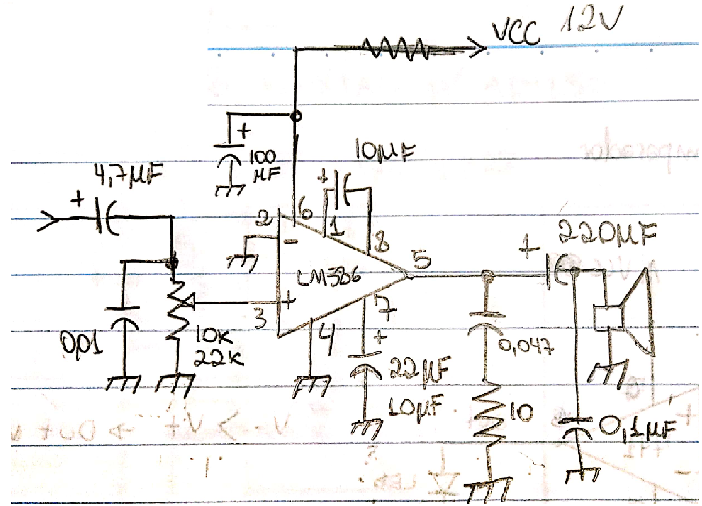 VCC 12V
+
100
µF
10µF
+
4,7µF
+
2
6
1
8
-
LM386
5
+
220µF
+
3
4
7
+
0,01
10K
22K
22µF
10µF
0,047
10
0,1µF